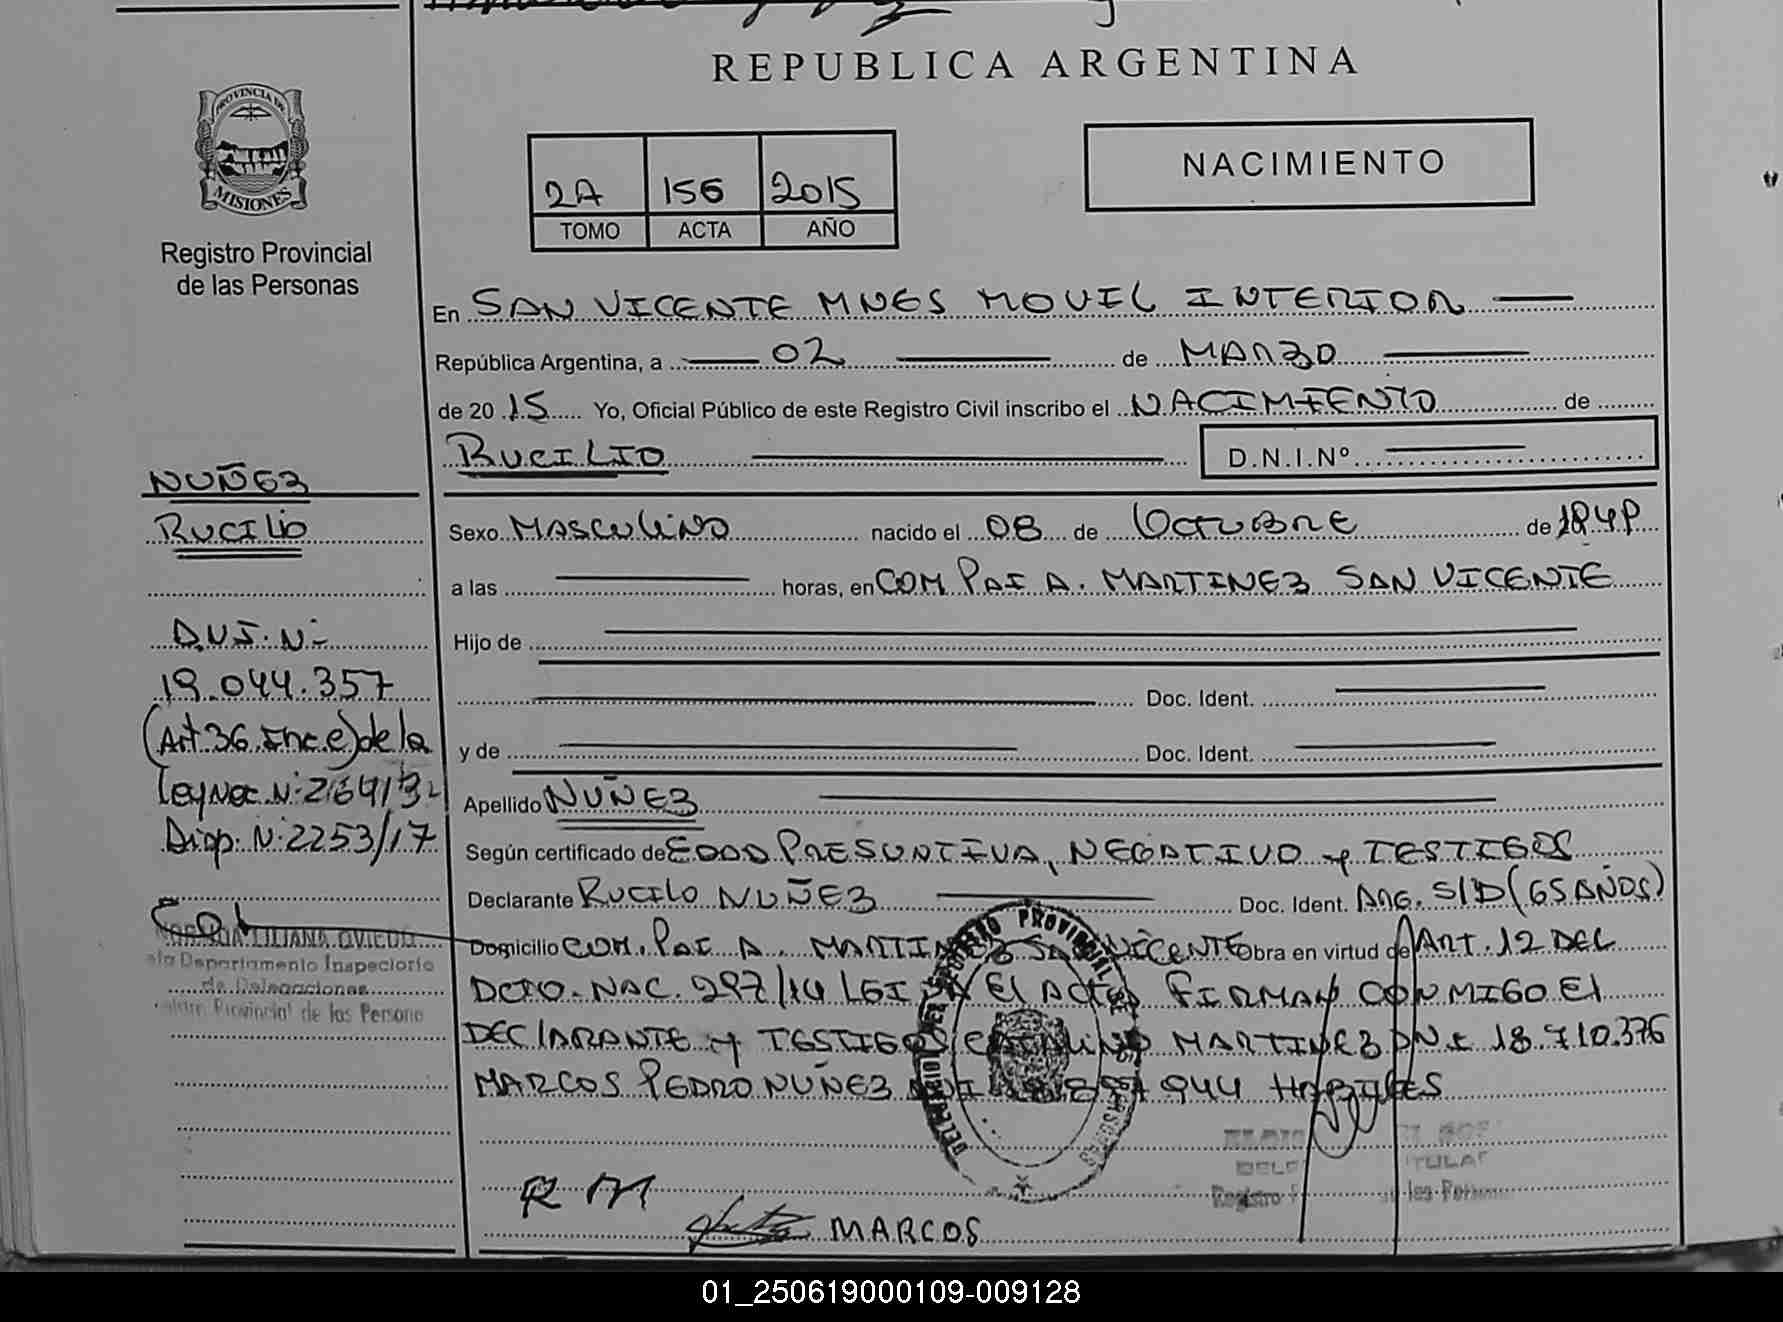 REPUBLICA ARGENTINA
PROVINCIA DE
MISIONES
Registro Provincial
de las Personas
2A 156 2015
TOMO ACTA AÑO
NACIMIENTO
En SAN VICENTE MNES MOVIL INTERIOR
República Argentina, a 02 de MARZO
de 20 15 Yo, Oficial Público de este Registro Civil inscribo el NACIMIENTO de
RUCILIO D.N.I.Nº
NUÑEZ
RUCILIO
D.N.I. Nº
19.044.357
(Art 36 Inc. e) de la
Ley Nac. Nº
Disp. Nº 2253/17
LILIANA OVIEDO
Departamento Inspectorio
de Delegaciones
Provincial de las Persona
Sexo MASCULINO nacido el 08 de OCTUBRE de
a las horas, en COM. PAI A. MARTINEZ SAN VICENTE
Hijo de
Doc. Ident.
y de Doc. Ident.
Apellido NUÑEZ
Según certificado de EDAD PRESUNTIVA, NEGATIVO y TESTIGOS
Declarante RUCILO NUÑEZ Doc. Ident. ARG. S/D (65 AÑOS)
Domicilio COM. PAI A. MARTINEZ SAN VICENTE Obra en virtud de ART. 12 DEL
DCTO. NAC. 297/14 LEIDA El ACTA FIRMAN CONMIGO El
DEClARANTE y TESTIGOS CATALINO MARTINEZ DNI 18.710.376
MARCOS PEDRO NUÑEZ 944 HABILES
REGISTRO PROVINCIAL DE LAS PERSONAS
R M
MARCOS
Registro las Personas
01_250619000109-009128